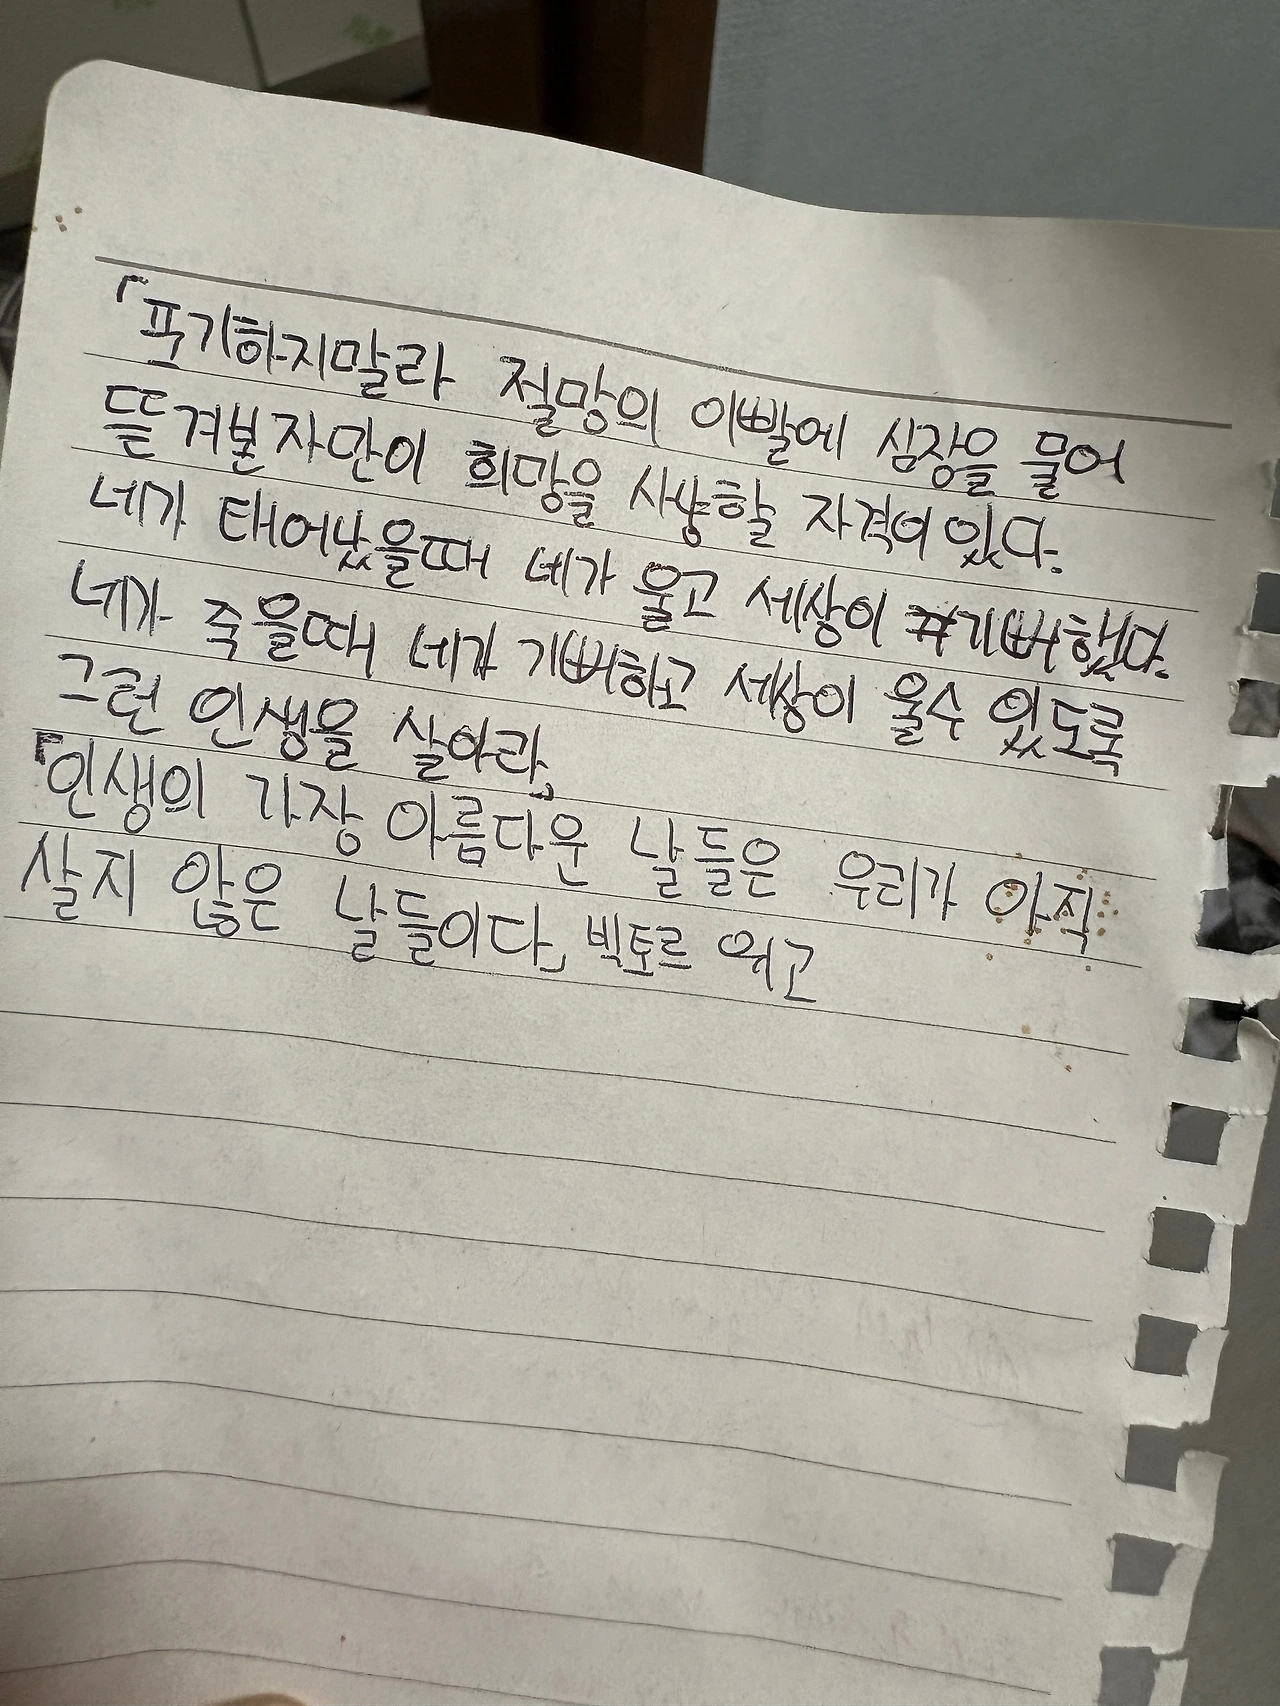 「포기하지말라 절망의 이빨에 심장을 물어
뜯겨본자만이 희망을 사냥할 자격이있다.
네가 태어났을때 네가 울고 세상이 기뻐했다.
네가 죽을때 네가 기뻐하고 세상이 울수 있도록
그런 인생을 살아라」
「인생의 가장 아름다운 날들은 우리가 아직
살지 않은 날들이다」 빅토르 위고